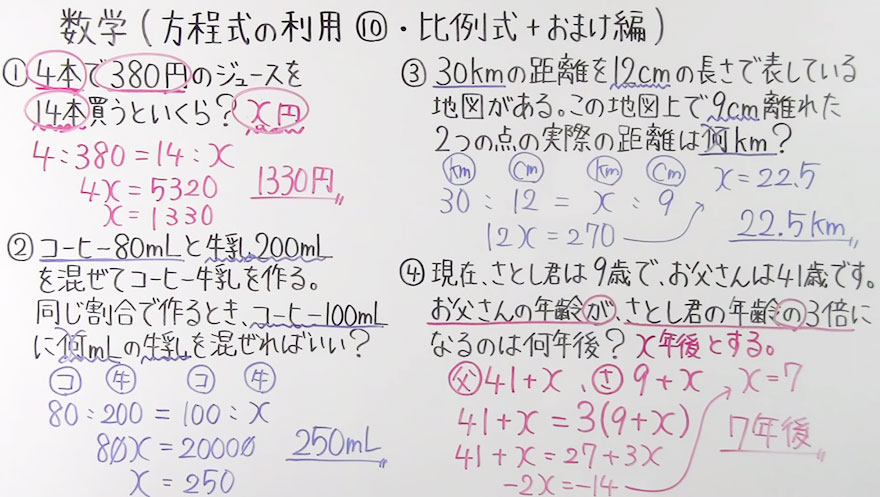 数学(方程式の利用⑩・比例式+おまけ編)
①4本で380円のジュースを
14本買うといくら?x円
4:380=14:x
4x=5320
x=1330
1330円
②コーヒー80mLと牛乳200mL
を混ぜてコーヒー牛乳を作る。
同じ割合で作るとき、コーヒー100mL
に何mLの牛乳を混ぜればいい?
コ 牛 コ 牛
80:200=100:x
80x=20000
x=250
250mL
③30kmの距離を12cmの長さで表している
地図がある。この地図上で9cm離れた
2つの点の実際の距離は何km?
km cm km cm
30:12=x:9
12x=270
x=22.5
22.5km
④現在、さとし君は9歳で、お父さんは41歳です。
お父さんの年齢が、さとし君の年齢の3倍に
なるのは何年後?x年後とする。
父41+x、さ9+x
41+x=3(9+x)
41+x=27+3x
-2x=-14
x=7
7年後